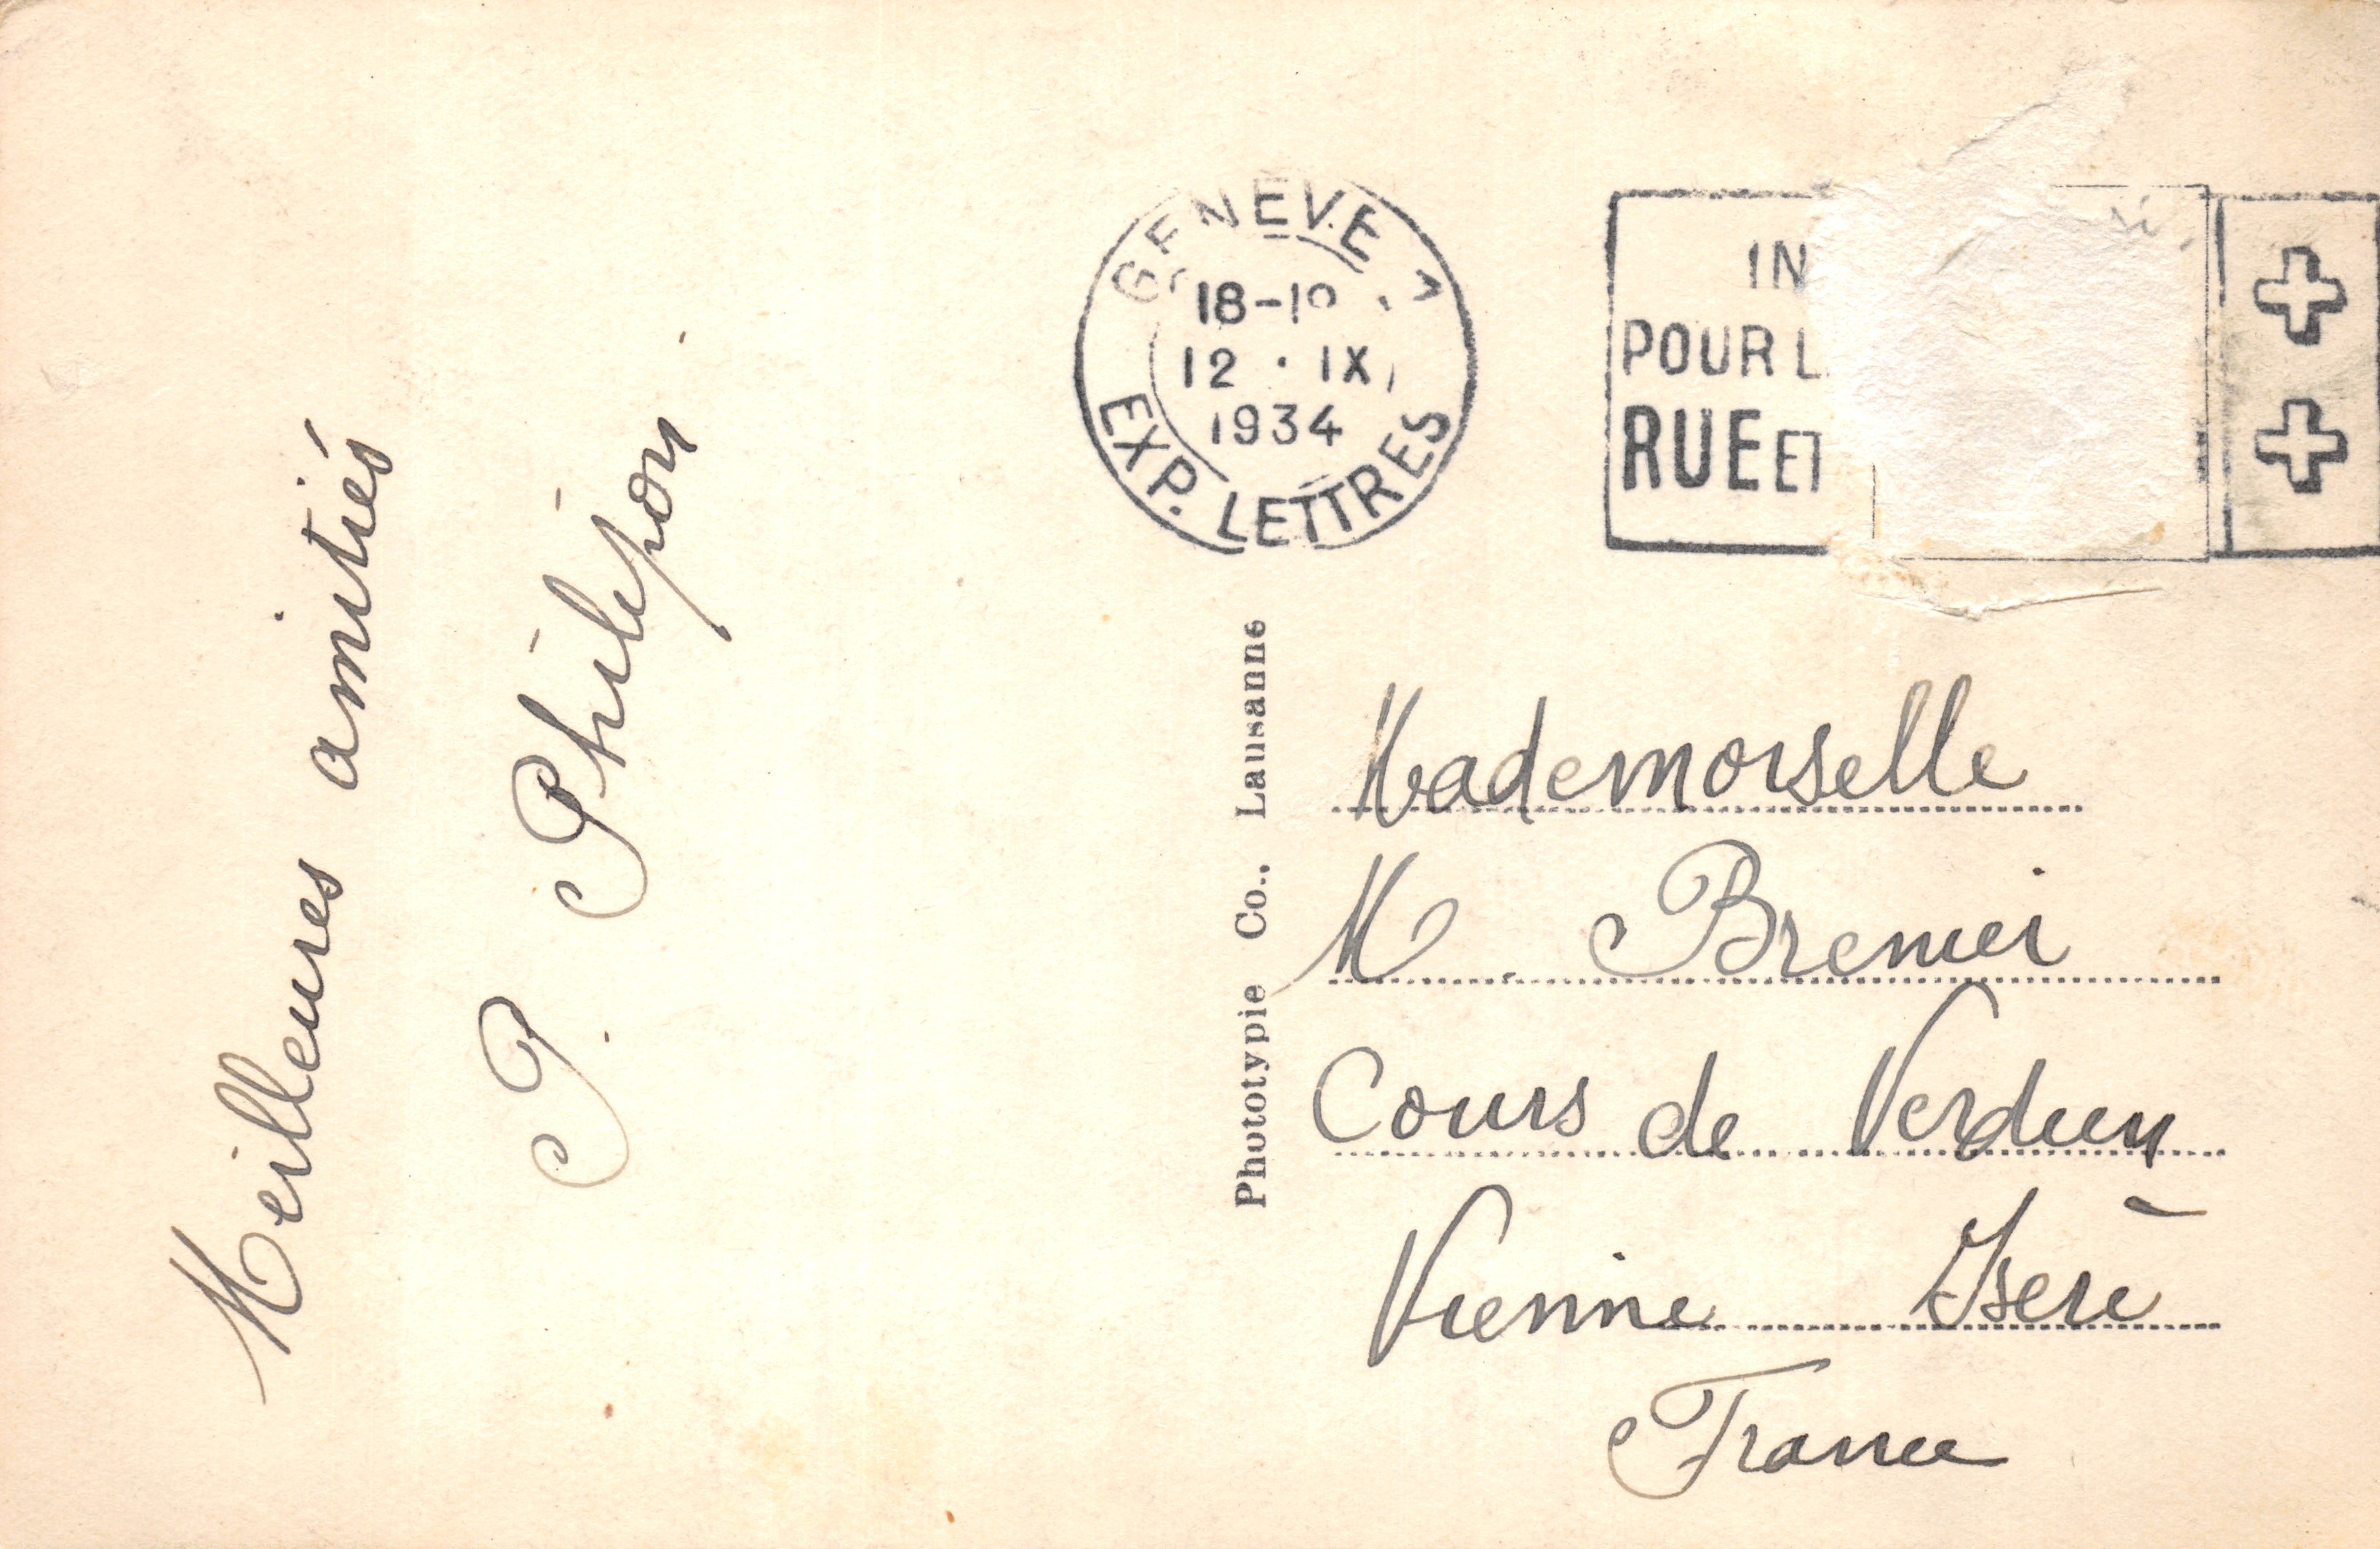 Meilleures amitiés
P. Philipon
GENÈVE
18-19
12 · IX
1934
EXP. LETTRES
IN
POUR L
RUE ET
Phototypie Co., Lausanne
Mademoiselle
M Brenier
Cours de Verdun
Vienne Isère
France